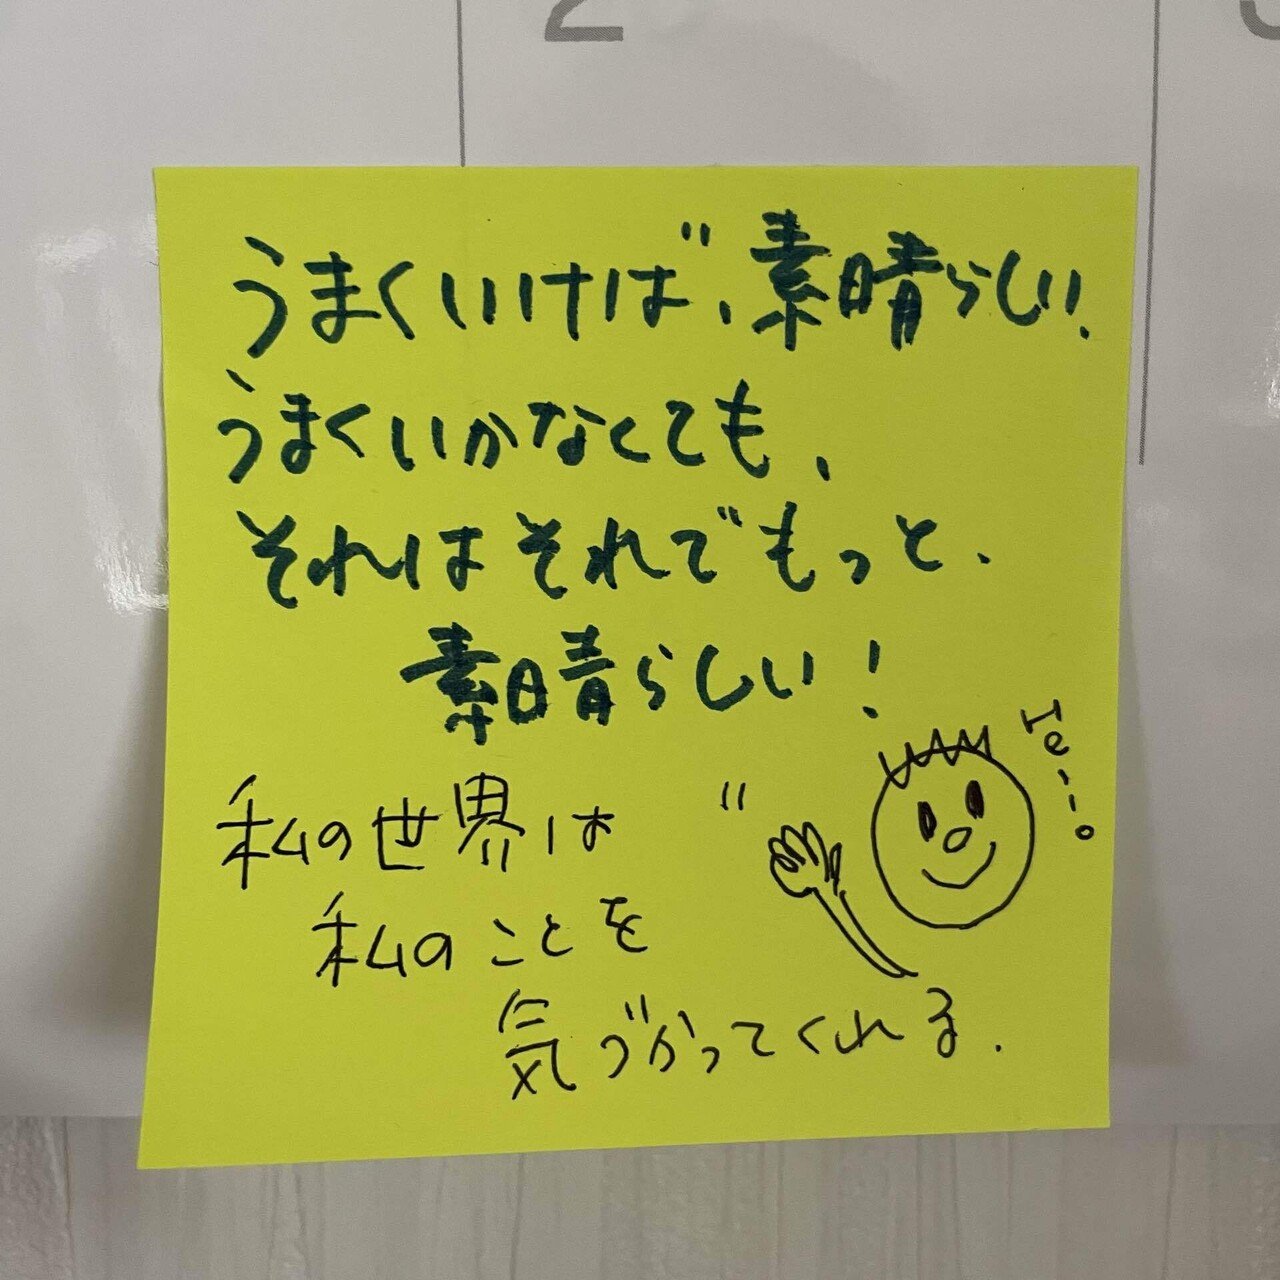 2
うまくいけば、素晴らしい、
うまくいかなくても、
それはそれでもっと、
素晴らしい!
Ie---。
私の世界は
私のことを
気づかってくれる.